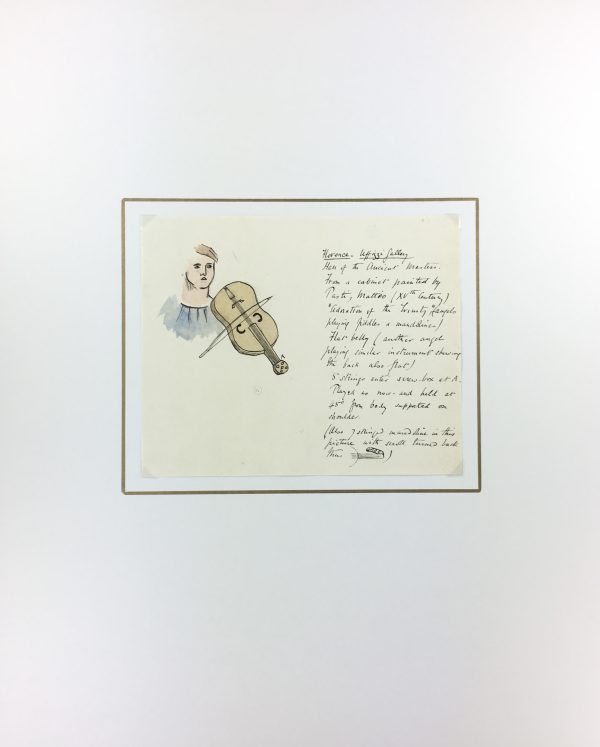 Florence - Uffizzi Gallery
Hall of the Ancient Masters.
From a cabinet painted by
Pasti, Matteo (XVth Century)
"Adoration of the Trinity" (angels
playing fiddles & mandolines)
Flat belly (another angel
playing similar instrument shewing
the back also flat)
5 strings enter screw-box at A.
Played as now - and held at
45° from body supported on
shoulder
(Also 7 stringed mandoline in this
picture with scroll turned back
thus )
A